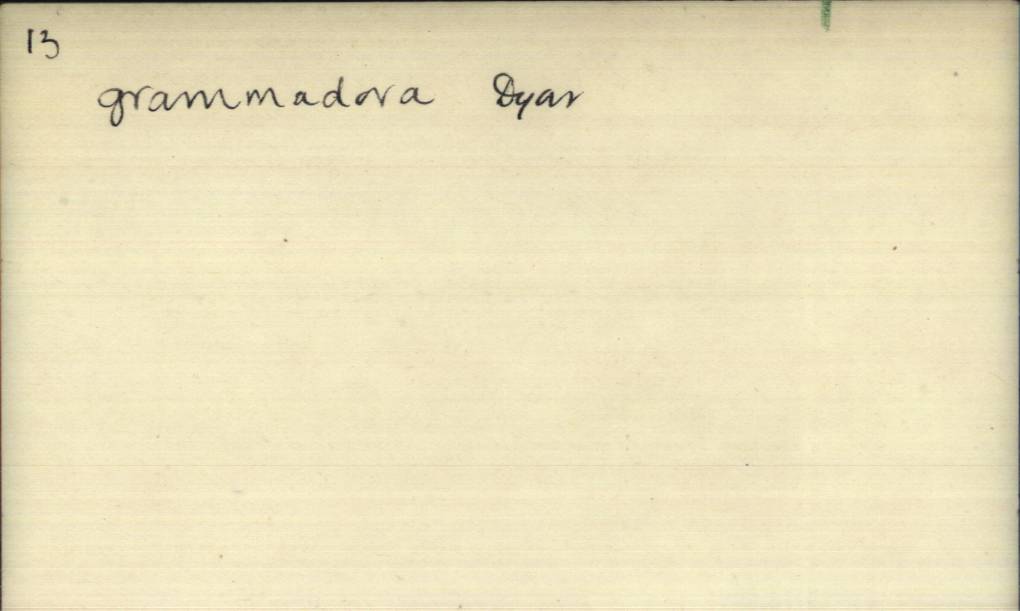 13
grammadora Dyar